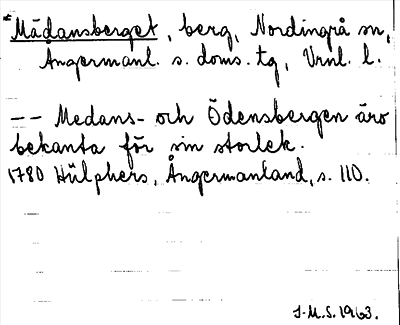 *Mädansberget, berg, Nordingrå sn,
Ångermanl. s. doms. tg, Vrnl. l.
-- Medans- och Ödensbergen äro
bekanta för sin storlek.
1780 Hülphers, Ångermanland, s. 110.
J.M.S. 1963.